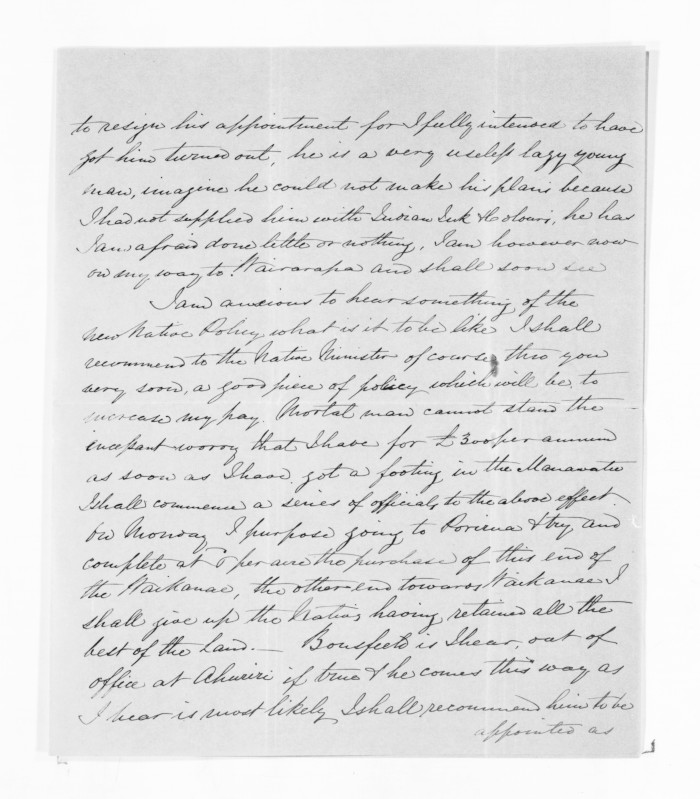 to resign his appointment for I fully intended to have
got him turned out, he is a very useless lazy young
man, imagine he could not make his plans because
I had not supplied him with Indian Ink & Colours, he has
I am afraid done little or nothing, I am however now
on my way to Wairarapa and shall soon see
I am anxious to hear something of the
new Native Policy what is it to be like I shall
recommend to the Native Minister of course thro you
very soon, a good piece of policy which will be, to
increase my pay. Mortal man cannot stand the
incessant worry that I have for £300 per annum
as soon as I have got a footing in the Manawatu
I shall commence a series of officials to the above effect
On Monday I purpose going to Porirua & try and
complete at per acre the purchase of this end of
the Waikanae, the other end towards Waikanae I
shall give up the Natives having retained all the
best of the land. — Bousfield is I hear, out of
office at Ahuriri if true & he comes this way as
I hear is most likely I shall recommend him to be
appointed as